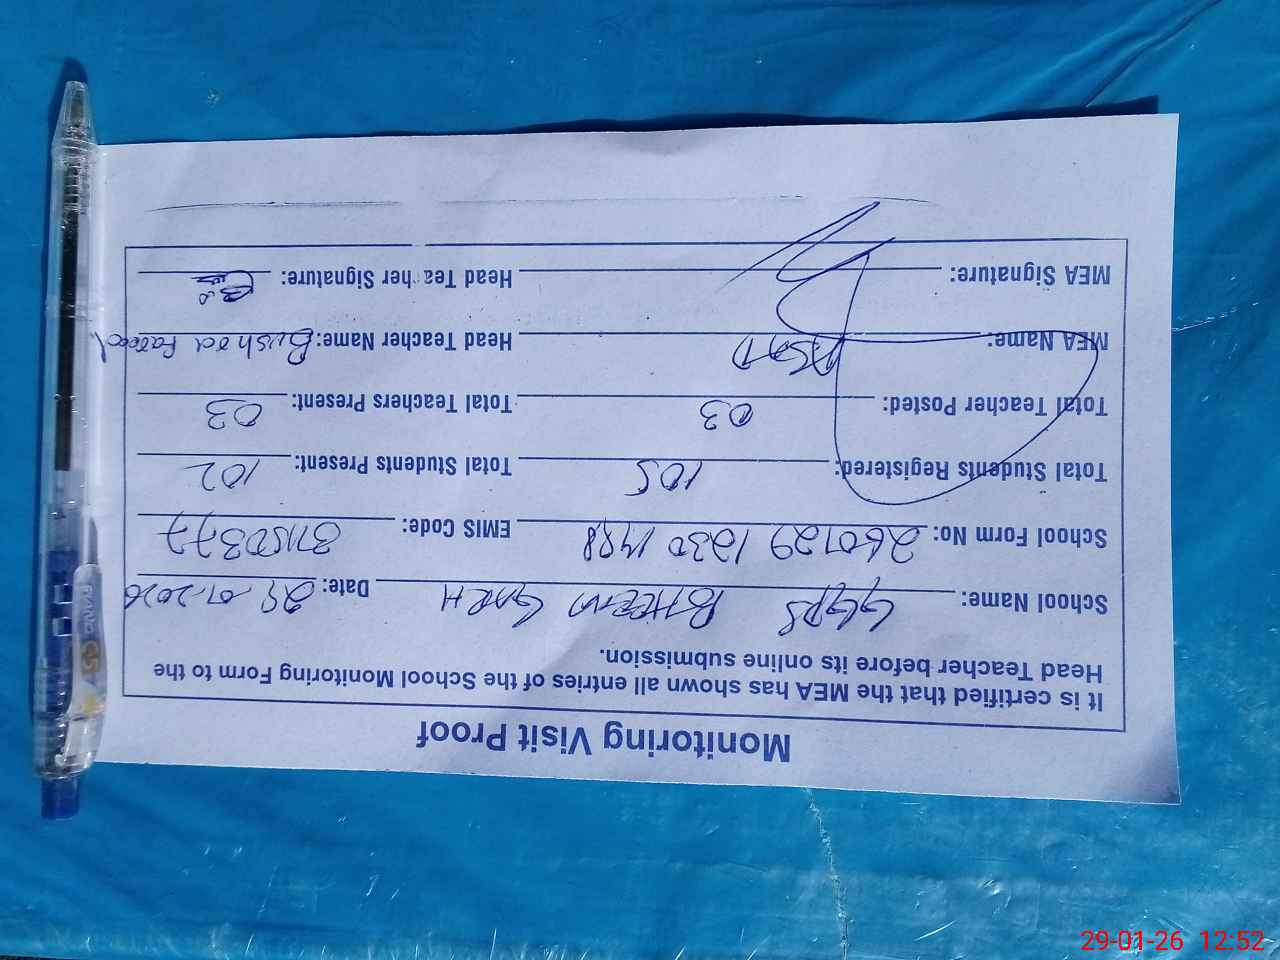 Monitoring Visit Proof
It is certified that the MEA has shown all entries of the School Monitoring Form to the
Head Teacher before its online submission.
School Name: GGPS BHEEM GARH Date: 29-01-2026
School Form No: 260129 1230 1488 EMIS Code:
Total Students Registered: 105 Total Students Present: 102
Total Teacher Posted: 03 Total Teachers Present: 03
MEA Name: ASAD Head Teacher Name: Bushra
MEA Signature: Head Teacher Signature:
29-01-26 12:52